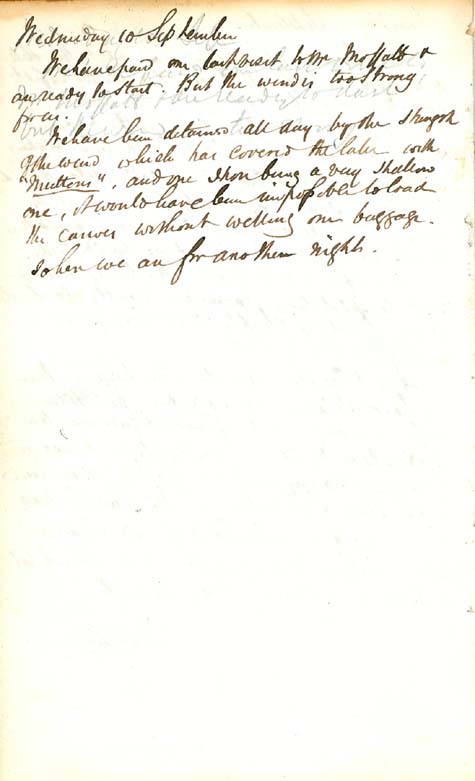 Wednesday 10 September
We have paid our last visit to Mr Moffatt &
are ready to start. But the wind is too strong
for us.
We have been detained all day by the strength
of the wind which has covered the lake with
"Muttons", and our shore being a very shallow
one, it would have been impossible to load
the canoes without wetting our baggage.
So here we are for another night.